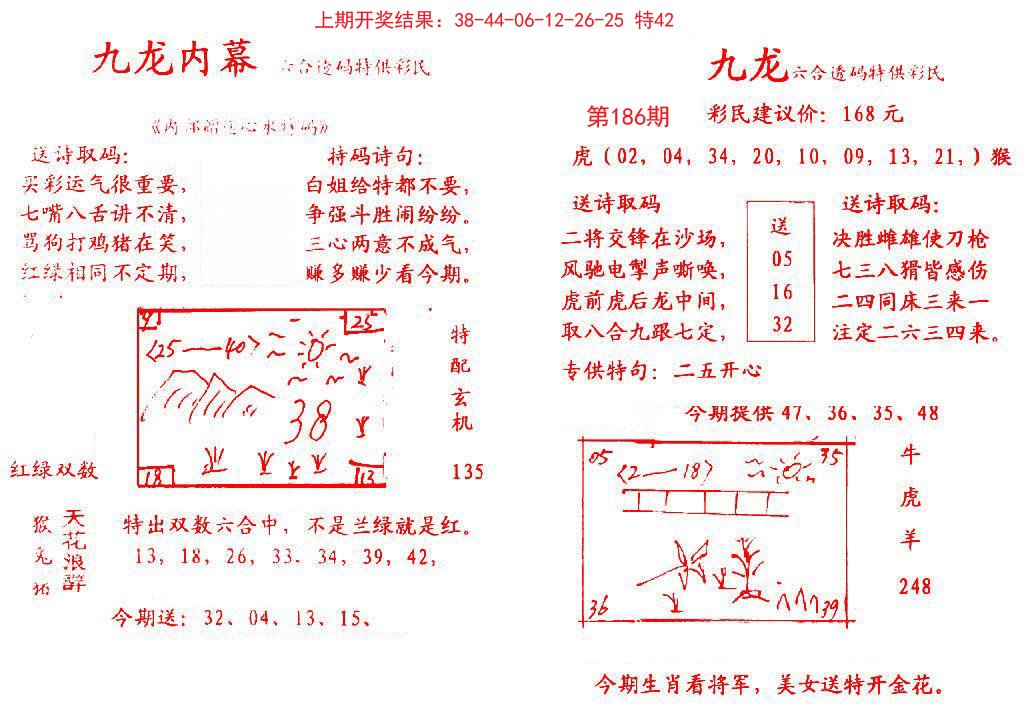 上期开奖结果：38-44-06-12-26-25 特42
九龙内幕 六合透码特供彩民
送诗取码：
买彩运气很重要，
七嘴八舌讲不清，
骂狗打鸡猪在笑，
红绿相同不定期，
特码诗句：
白姐给特都不要，
争强斗胜闹纷纷。
三心两意不成气，
赚多赚少看今期。
25
〈25——40〉
38
18
13
特配玄机
135
红绿双数
猴
兔
天花浪辞
特出双数六合中，不是兰绿就是红。
13，18，26，33．34，39，42，
今期送：32、04、13、15、
九龙六合透码特供彩民
第186期
彩民建议价：168元
虎（02，04，34，20，10，09，13，21，）猴
送诗取码
二将交锋在沙场，
风驰电掣声嘶唤，
虎前虎后龙中间，
取八合九跟七定，
送
05
16
32
送诗取码：
决胜雌雄使刀枪
七三八猾皆感伤
二四同床三来一
注定二六三四来。
专供特句：二五开心
今期提供47、36、35、48
05
35
〈2——18〉
36
39
牛
虎
羊
248
今期生肖看将军，美女送特开金花。